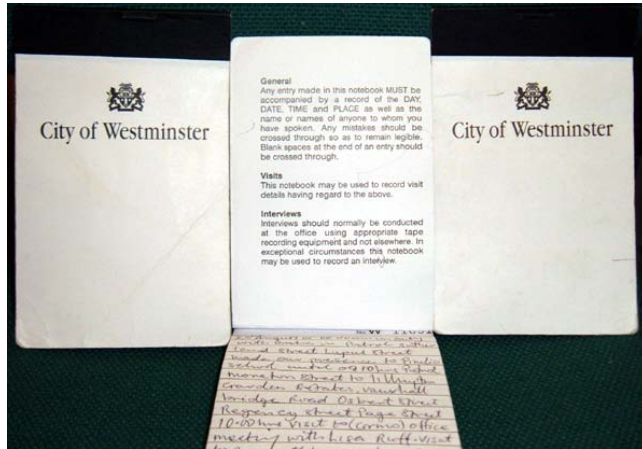 City of Westminster
General
Any entry made in this notebook MUST be
accompanied by a record of the DAY,
DATE, TIME and PLACE as well as the
name or names of anyone to whom you
have spoken. Any mistakes should be
crossed through so as to remain legible.
Blank spaces at the end of an entry should
be crossed through.
Visits
This notebook may be used to record visit
details having regard to the above.
Interviews
Interviews should normally be conducted
at the office using appropriate tape
recording equipment and not elsewhere. In
exceptional circumstances this notebook
may be used to record an interview.
City of Westminster
Street Lupus Street
made our presence to
school until 0910hrs
Street to Tillington
Estates. Vauxhall
bridge Road Osbert Street
Regency Street Page Street
10.00hrs Visit to office
meeting with Lisa visit